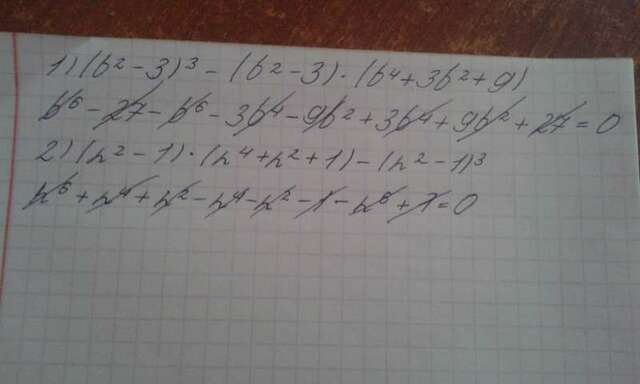 1) (b² - 3)³ - (b² - 3) · (b⁴ + 3b² + 9)
b⁶ - 27 - b⁶ - 3b⁴ - 9b² + 3b⁴ + 9b² + 27 = 0
2) (h² - 1) · (h⁴ + h² + 1) - (h² - 1)³
h⁶ + h⁴ + h² - h⁴ - h² - 1 - h⁶ + 1 = 0